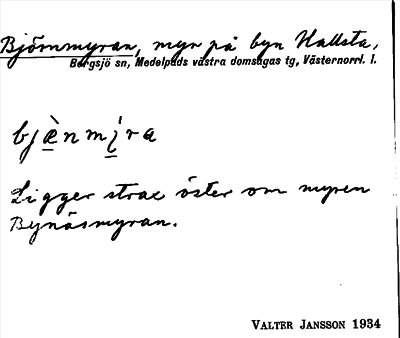 Björnmyran, myr på byn Hallsta,
Bergsjö sn, Medelpads västra domsagas tg, Västernorrl. l.
bjæ̀nmira
Ligger strax öster om myren
Bynäsmyran.
VALTER JANSSON 1934